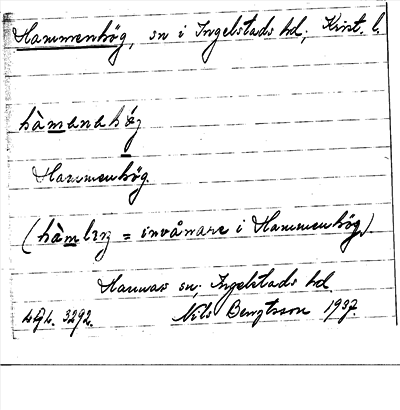 Hammenhög, sn i Ingelstads hd; Krist. l.
hàmanahǿg
Hammenhög
(hàmlıŋ = invånare i Hammenhög)
Hannas sn; Ingelstads hd
3292. Nils Bengtsson 1937.